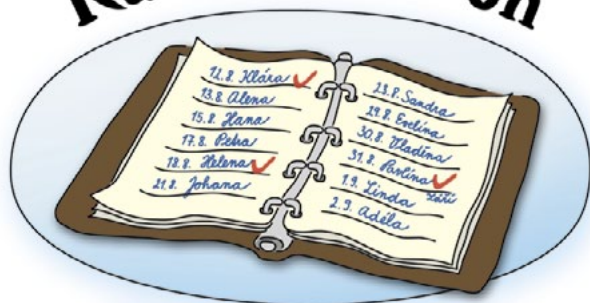 12.8. Klára
13.8. Alena
15.8. Hana
17.8. Petra
18.8. Helena
21.8. Johana
23.8. Sandra
29.8. Evelína
30.8. Vladěna
31.8. Pavlína
Září
1.9. Linda
2.9. Adéla